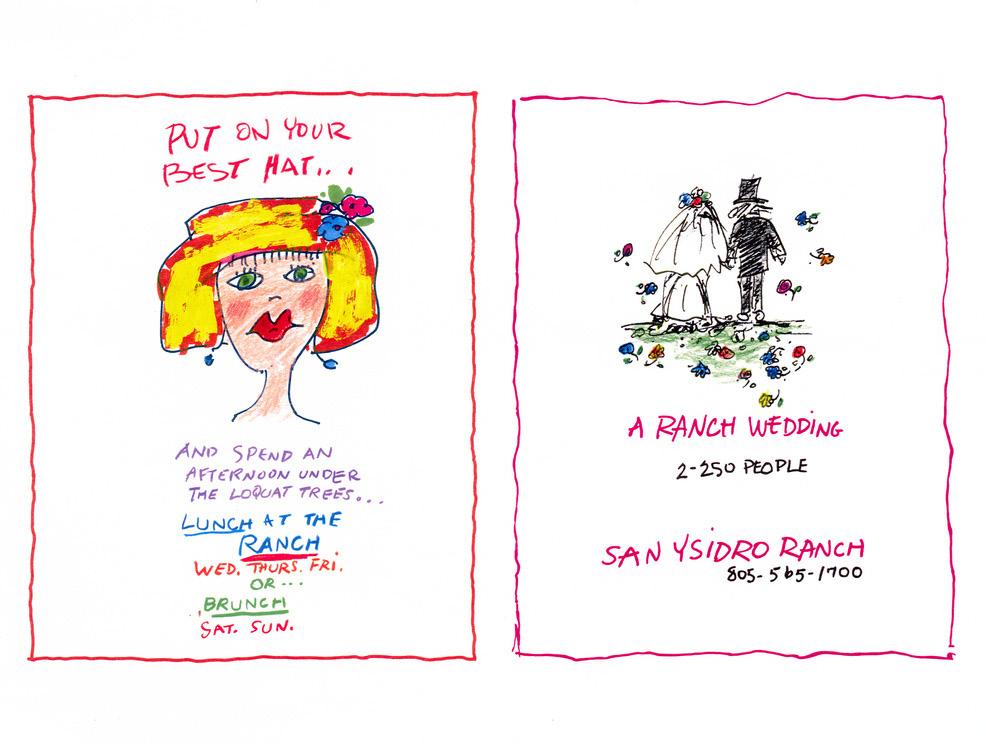 PUT ON YOUR
BEST HAT...
AND SPEND AN
AFTERNOON UNDER
THE LOQUAT TREES...
LUNCH AT THE
RANCH
WED. THURS. FRI.
OR...
BRUNCH
SAT. SUN.
A RANCH WEDDING
2-250 PEOPLE
SAN YSIDRO RANCH
805-565-1700